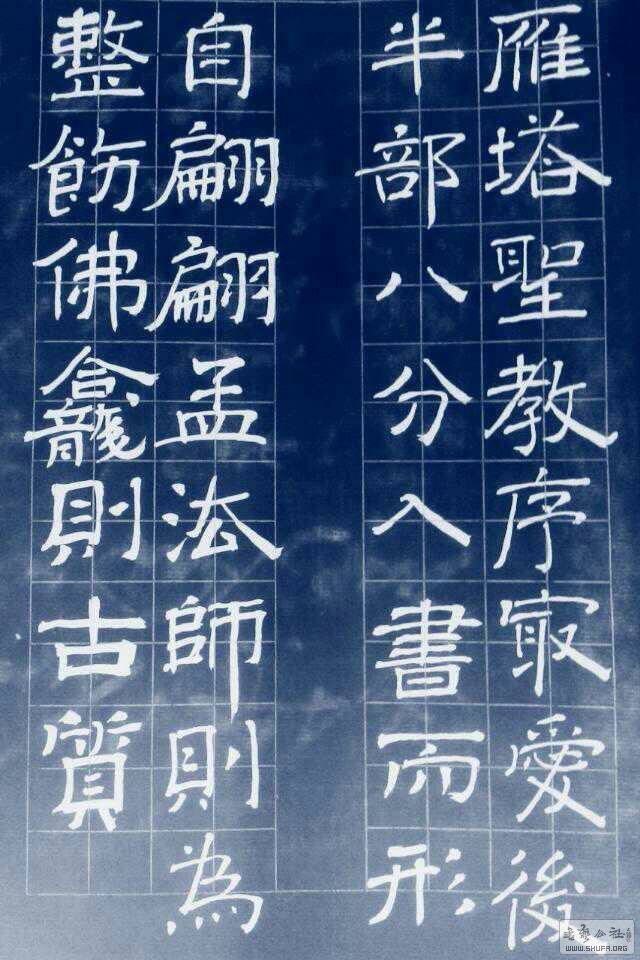 雁塔聖教序冣愛後
半部八分入書而形
自翩翩孟法師則為
整飭佛龕則古質
書法公社
WWW.SHUFA.ORG